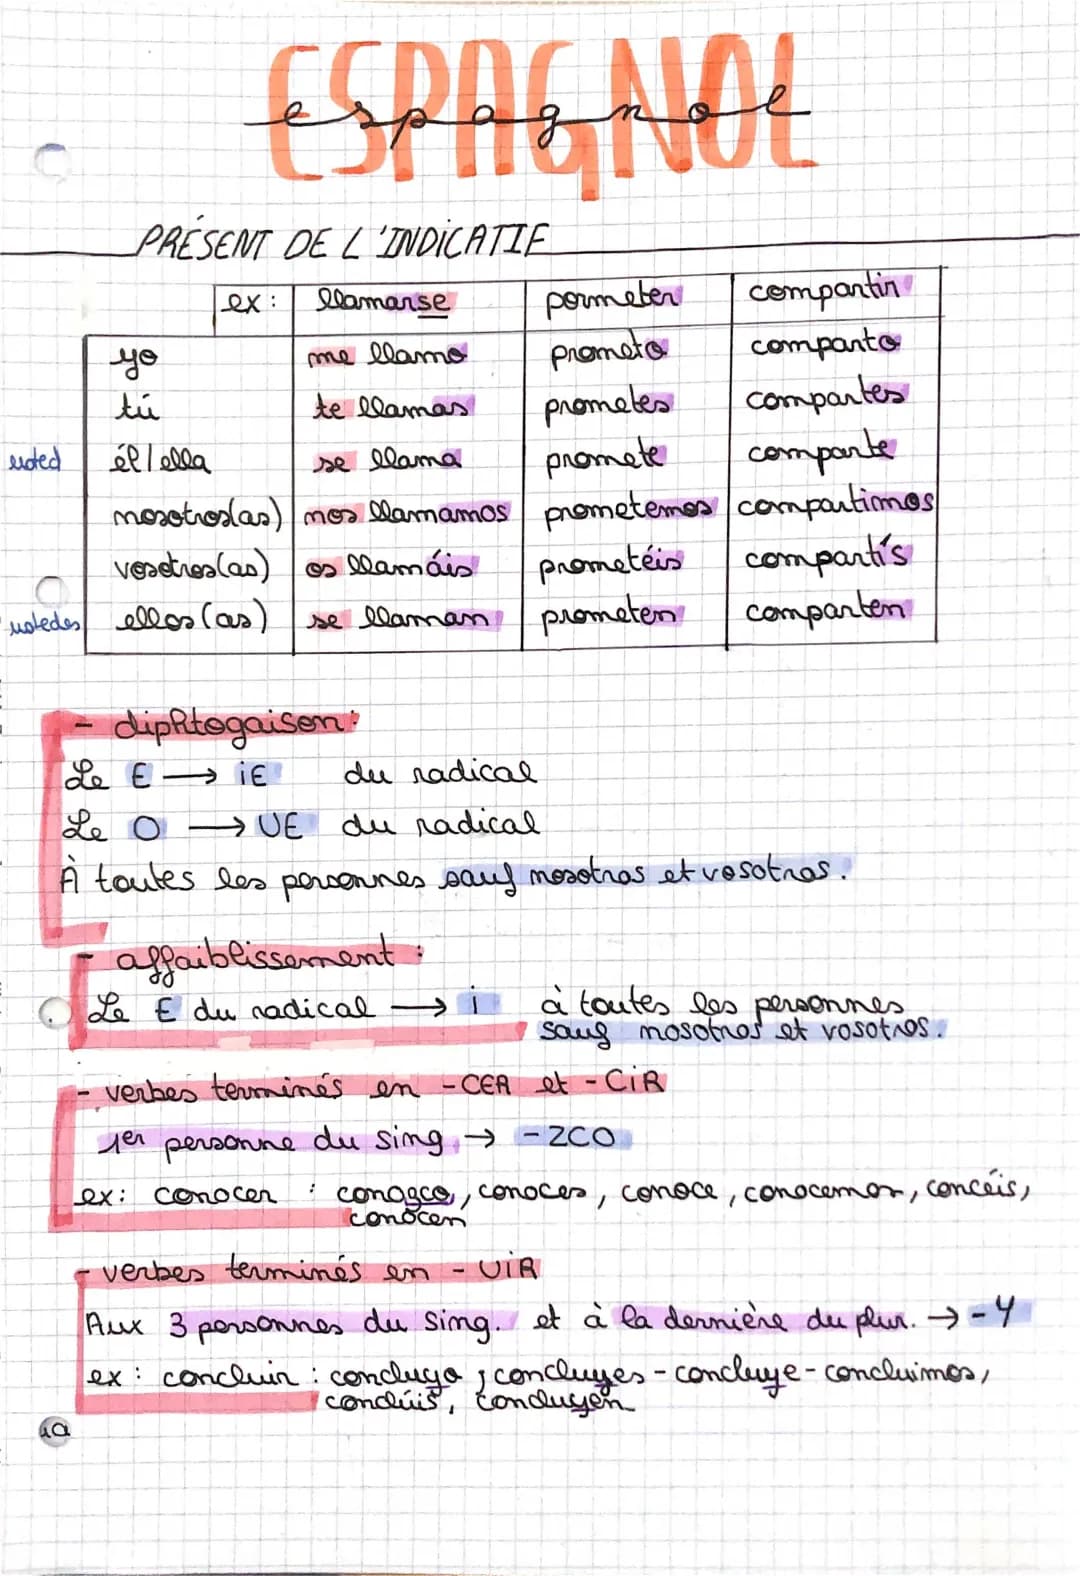 ESPAGNOL
espagnol
PRÉSENT DE L'INDICATIF
ex: llamarse pormeter compartir
yo me llamo prometo comparto
tú te llamas prometes compartes
usted él/ella se llama promete comparte
nosotros(as) nos llamamos prometemos compartimos
vosotros(as) os llamáis prometéis compartís
ustedes ellos(as) se llaman prometen comparten
- diphtogaison:
Le E → iE du radical
Le O → UE du radical
À toutes les personnes sauf nosotros et vosotros.
- affaiblissement:
Le E du radical → i à toutes les personnes
sauf nosotros et vosotros.
- verbes terminés en -CER et -CiR
1er personne du sing. → -ZCO
ex: conocer : conozco, conoces, conoce, conocemos, concéis,
conocen
- verbes terminés en - UiR
Aux 3 personnes du sing. et à la dernière du plur. → -Y
ex: concluir : concluyo ; concluyes - concluye - concluimos,
conclúis, concluyen